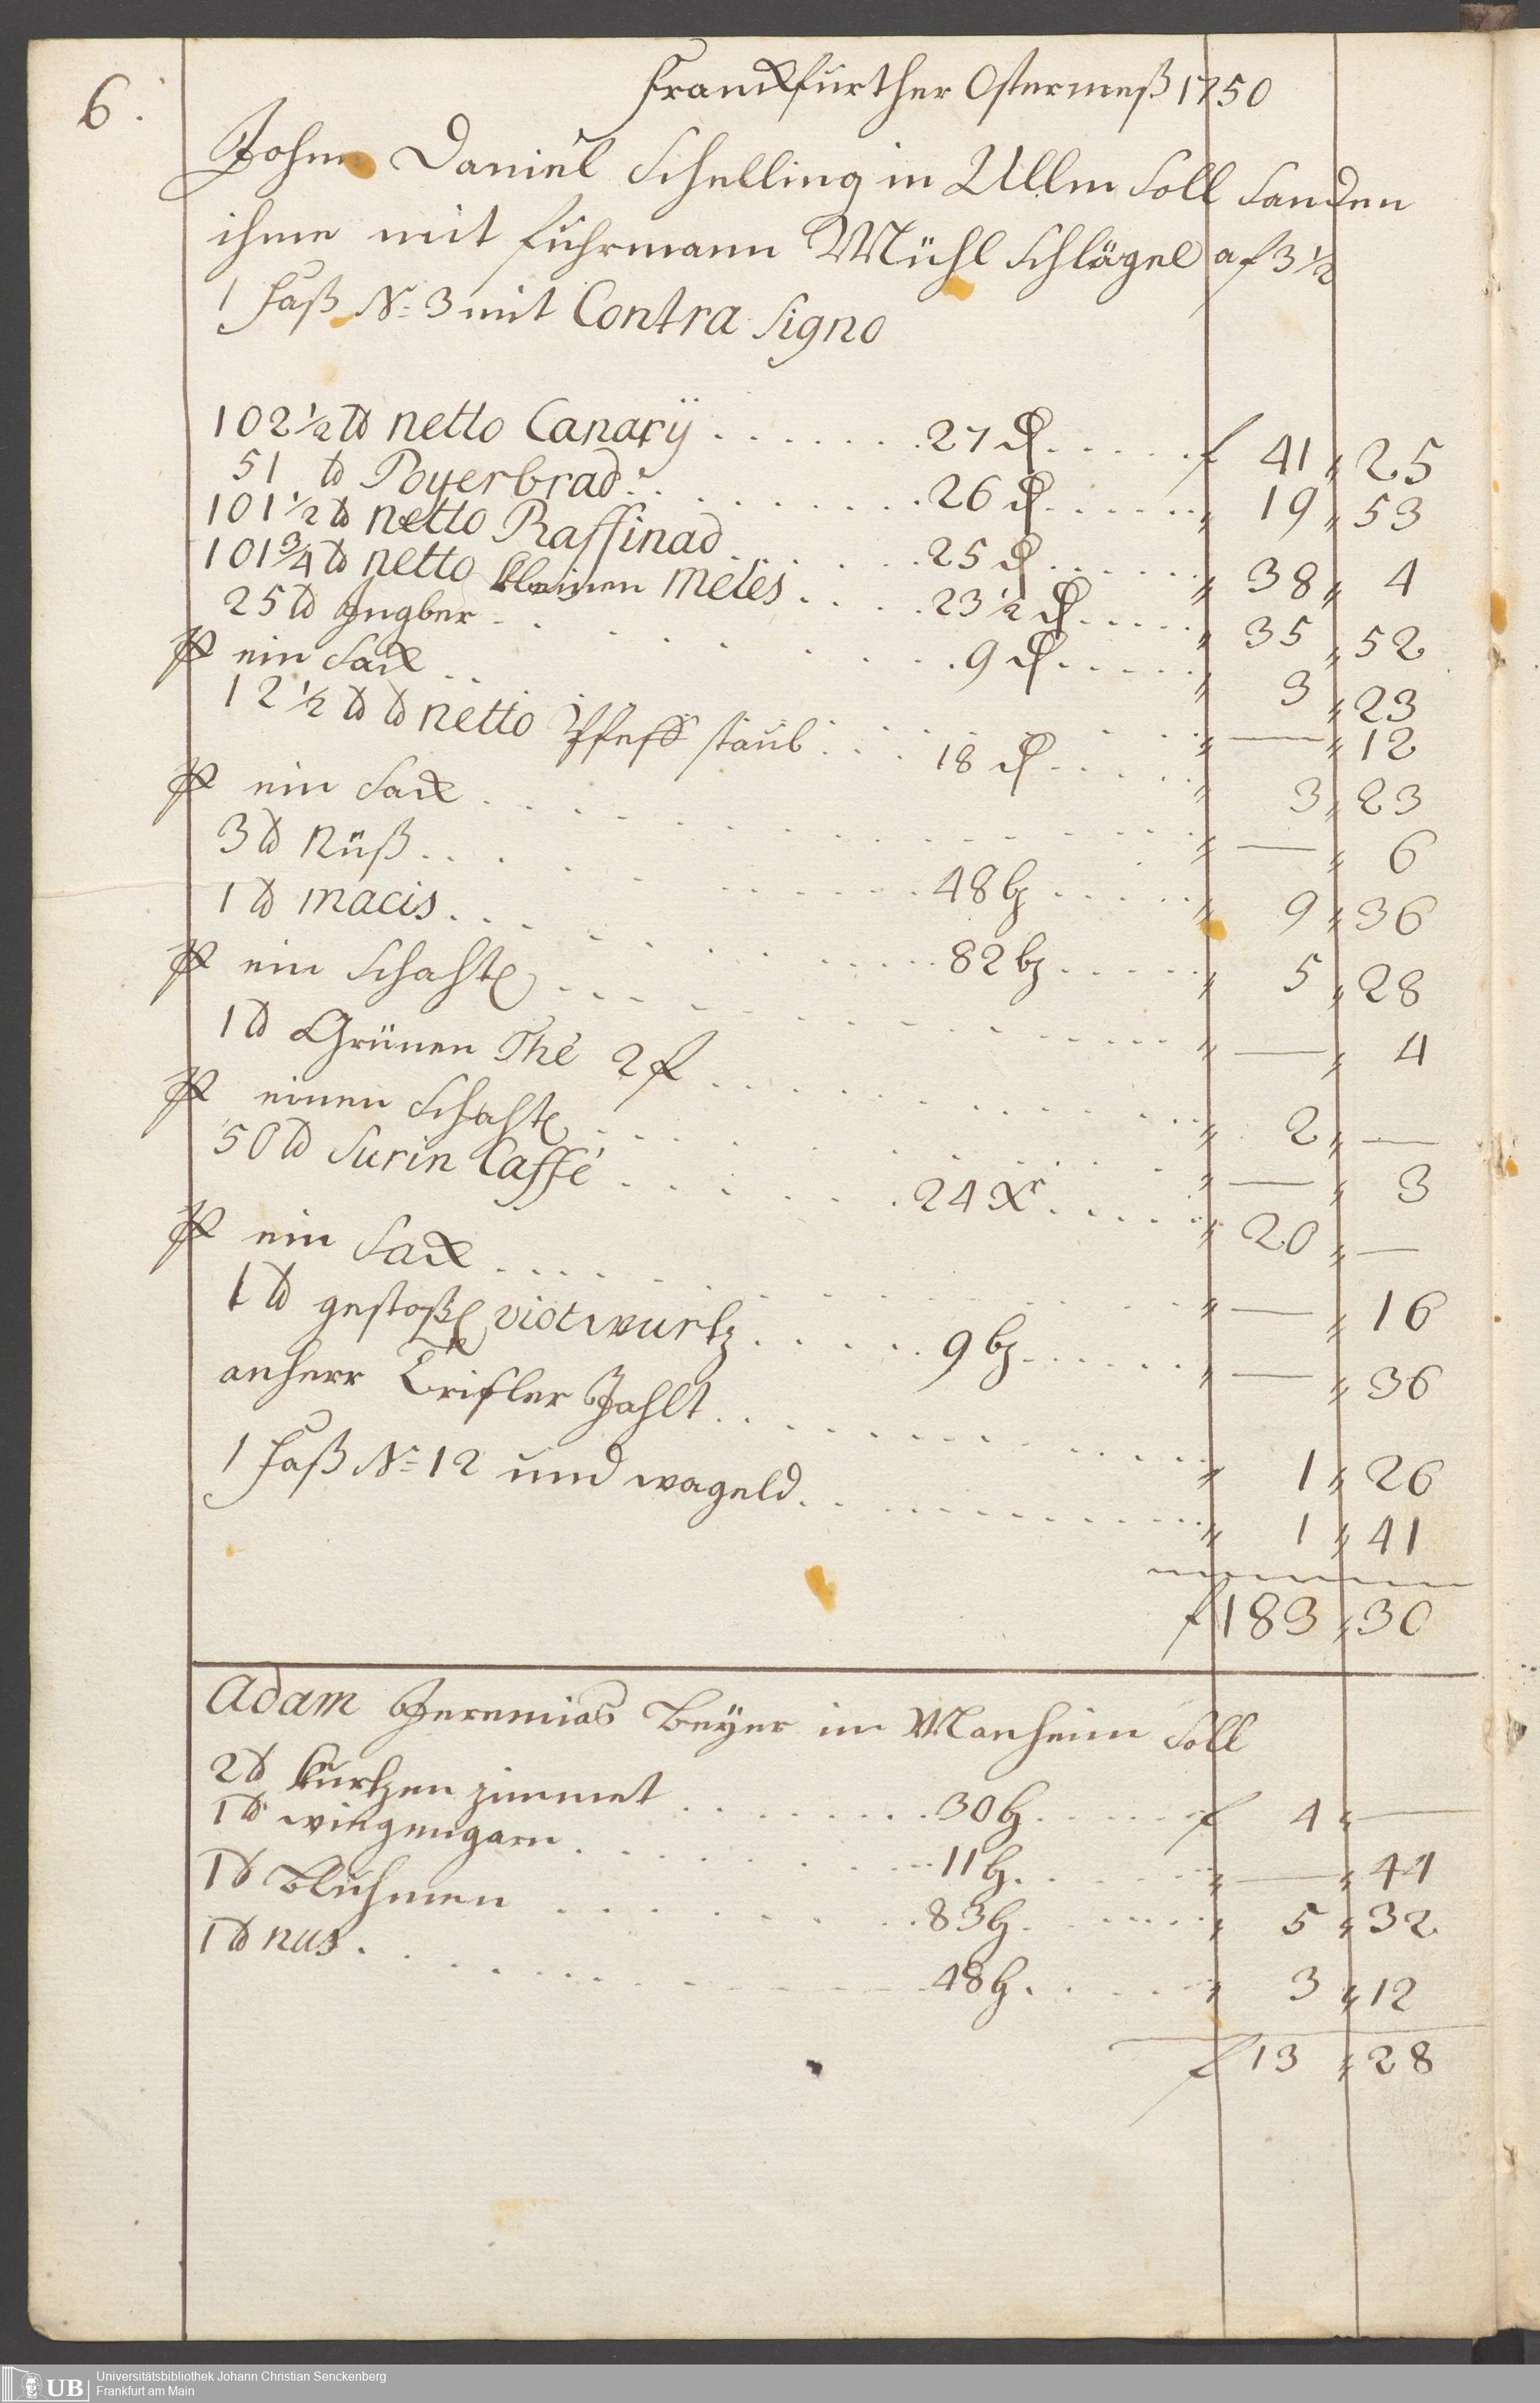 6.
Franckfurther Ostermeß 1750
Johann Daniel Schelling in Ullm Soll Sanden
ihme mit fuhrmann Mühl Schlägel a f 3 1/2
1 faß N: 3 mit Contra Signo
102 1/2 ℔ netto Canarÿ . . . . . . . 27 ₰ . . . . . f 41 〃 25
51 ℔ Poyerbrad . . . . . . . . 26 ₰ . . . . . 〃 19 〃 53
101 1/2 ℔ netto Raffinad . . . . . 25 ₰ . . . . . 〃 38 〃 4
101 3/4 ℔ netto kleinen meles . . . . 23 1/2 ₰ . . . . . 〃 35 〃 52
25 ℔ Ingber . . . . . . . . 9 ₰ . . . . . 〃 3 〃 23
ein Sack . . . . . . . . 〃 — 〃 12
12 1/2 ℔ ℔ netto Pfeff staub . . . . 18 ₰ . . . . . 〃 3 〃 23
ein Sack . . . . . . . . 〃 — 〃 6
3 ℔ Nüß . . . . . . . . 48 bz . . . . . 〃 9 〃 36
1 ℔ macis . . . . . . . . 82 bz . . . . . 〃 5 〃 28
ein Schachtel . . . . . . . . 〃 — 〃 4
1 ℔ Grünen Thé 2 f . . . . . . . . 〃 2 〃 —
einen Schachtel . . . . . . . . 〃 — 〃 3
50 ℔ Surin Caffé . . . . . . 24 Xr . . . . . 〃 20 〃 —
ein Sack . . . . . . . . 〃 — 〃 16
1 ℔ gestoßen violwurtz . . . . . 9 bz . . . . . 〃 — 〃 36
anherr Zahlt . . . . . . . . 〃 1 〃 26
1 faß N: 12 und wageld . . . . . . . . 〃 1 〃 41
f 183 〃 30
Adam Jeremias Beÿer in Manheim Soll
2 ℔ kurtzen zimmet . . . . . . . . 30 bz . . . . . f 4 〃 —
1 ℔ . . . . . . . . 11 bz . . . . . 〃 — 〃 44
1 ℔ Bluhmen . . . . . . . . 83 bz . . . . . 〃 5 〃 32
1 ℔ nus . . . . . . . . 48 bz . . . . . 〃 3 〃 12
f 13 〃 28
UB
Universitätsbibliothek Johann Christian Senckenberg
Frankfurt am Main